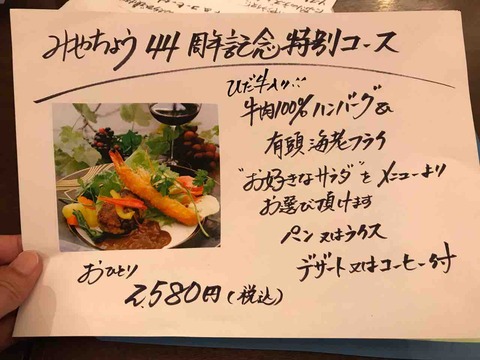 みやちょう 44周年記念特別コース
ひだ牛入り!!
牛肉100%ハンバーグ&
有頭海老フライ
"お好きなサラダ"をメニューより
お選び頂けます
パン又はライス
デザート又はコーヒー付
おひとり
2,580円(税込)